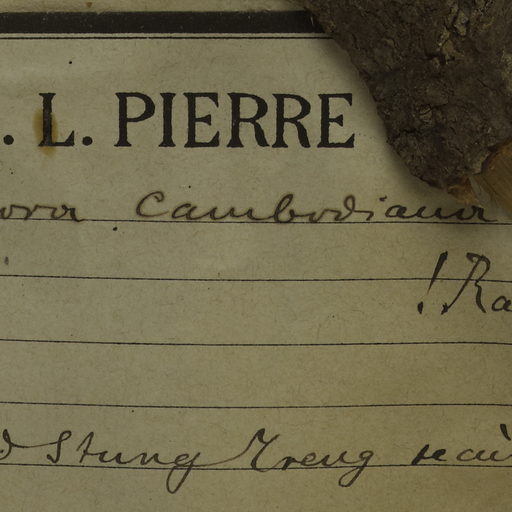 . L. PIERRE
ora Cambodiana
! Ra
d Stung Treng